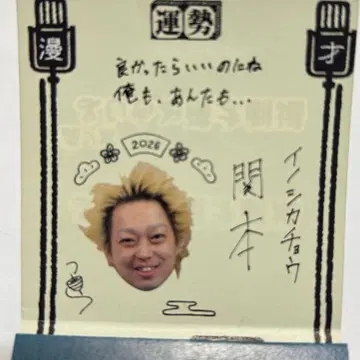 運勢
漫
才
良かったらいいのにね
俺も、あんたも...
2026
イノシカチョウ
関本